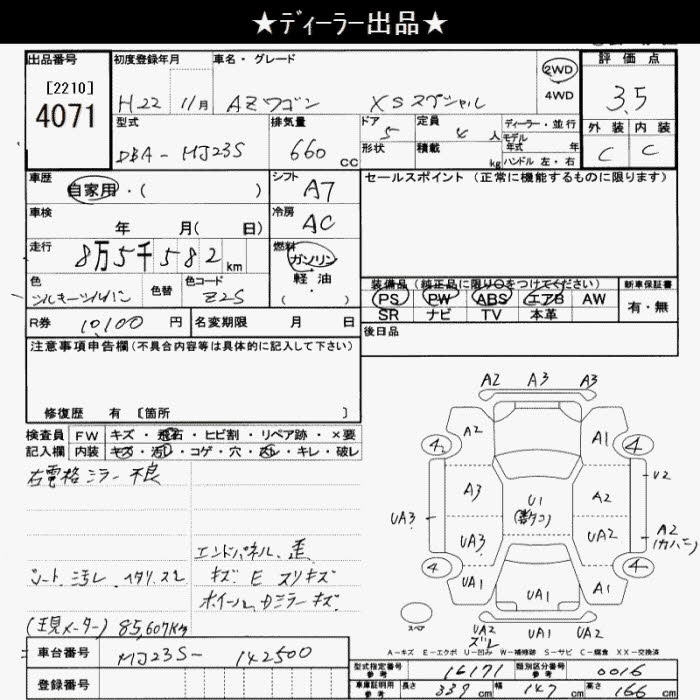 ★ディーラー出品★
出品番号 初度登録年月 車名・グレード 2WD 評価点
[2210] 4071 H22 11月 AZワゴン XSスペシャル 4WD 3.5
型式 排気量 ドア 5 定員 4 人 ディーラー・並行 外装 内装
モデル年式 年
DBA-MJ23S 660 cc 形状 積載 kg ハンドル 左・右 C C
車歴 自家用・( ) シフト A7 セールスポイント (正常に機能するものに限ります)
車検 年 月( 日) 冷房 AC
走行 8万5千582km 燃料 ガソリン
軽・油
( )
色 シルキーシルバー 色替 色コード Z2S
装備品 (純正品に限り○をつけてください) 新車保証書
PS PW ABS エアB AW 有・無
SR ナビ TV 本革
R券 10,100 円 名変期限 月 日 後日品
注意事項申告欄(不具合内容等は具体的に記入して下さい)
修復歴 有 [箇所 ]
検査員 FW キズ・飛石・ヒビ割・リペア跡・×要
記入欄 内装 キズ・汚れ・コゲ・穴・スレ・キレ・破レ
右電格ミラー不良
エンドパネル、歪
シート、汚レ、ヘタリ、スレ キズ E スリキズ
ホイール、ドミラーキズ
(現メーター) 85,607Km
A2 A3 A3
A2 A1
4 4
A3 A2 U2
U1
UA3 UA3 UA2 A2
(カバー)
4 4
UA1 UA1 A1
スペア UA2 UA1 UA2
ズレ
A-キズ E-エクボ U-凹み W-補修跡 S-サビ C-腐食 XX-交換済
車台番号 MJ23S-142500
登録番号
型式指定番号 参考 16171 類別区分番号 参考 0016
車庫証明用 参考 長さ 339cm 幅 147cm 高さ 166cm